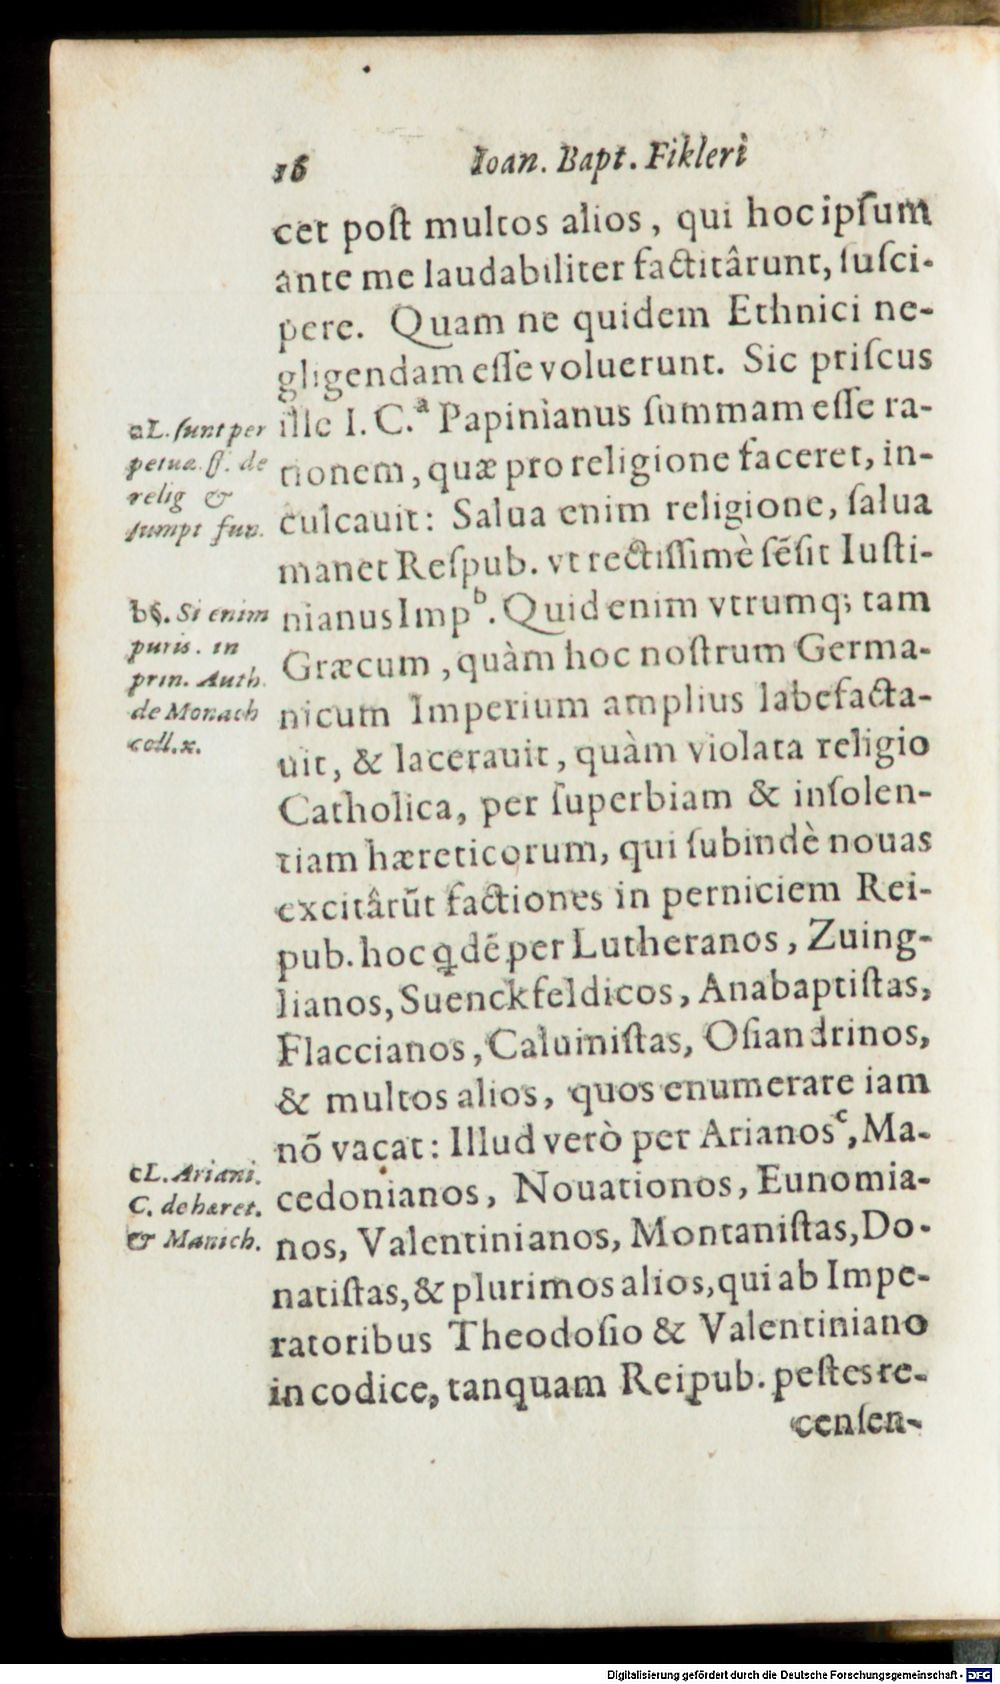 16 Ioan. Bapt. Fikleri
cet poſt multos alios, qui hoc ipſum
ante me laudabiliter factitârunt, ſuſci-
pere. Quam ne quidem Ethnici ne-
gligendam eſſe voluerunt. Sic priſcus
ille I. C.ª Papinianus ſummam eſſe ra-
tionem, quæ pro religione faceret, in-
culcauit: Salua enim religione, ſalua
manet Reſpub. vt rectiſſimè ſẽſit Iuſti-
nianus Impᵇ. Quid enim vtrumq; tam
Græcum, quàm hoc noſtrum Germa-
nicum Imperium amplius labefacta-
uit, & lacerauit, quàm violata religio
Catholica, per ſuperbiam & inſolen-
tiam hæreticorum, qui ſubindè nouas
excitârũt factiones in perniciem Rei-
pub. hoc qͥdẽ per Lutheranos, Zuing-
lianos, Suenckfeldicos, Anabaptiſtas,
Flaccianos, Caluiniſtas, Oſiandrinos,
& multos alios, quos enumerare iam
nõ vacat: Illud verò per Arianosᶜ, Ma-
cedonianos, Nouationos, Eunomia-
nos, Valentinianos, Montaniſtas, Do-
natiſtas, & plurimos alios, qui ab Impe-
ratoribus Theodoſio & Valentiniano
in codice, tanquam Reipub. peſtes re-
cenſen-
a L. ſunt per
petuæ. ff. de
relig &
ſumpt fun.
b §. Si enim
puris. in
prin. Auth.
de Monach
coll. x.
c L. Ariani.
C. de hæret.
& Manich.
Digitalisierung gefördert durch die Deutsche Forschungsgemeinschaft - DFG